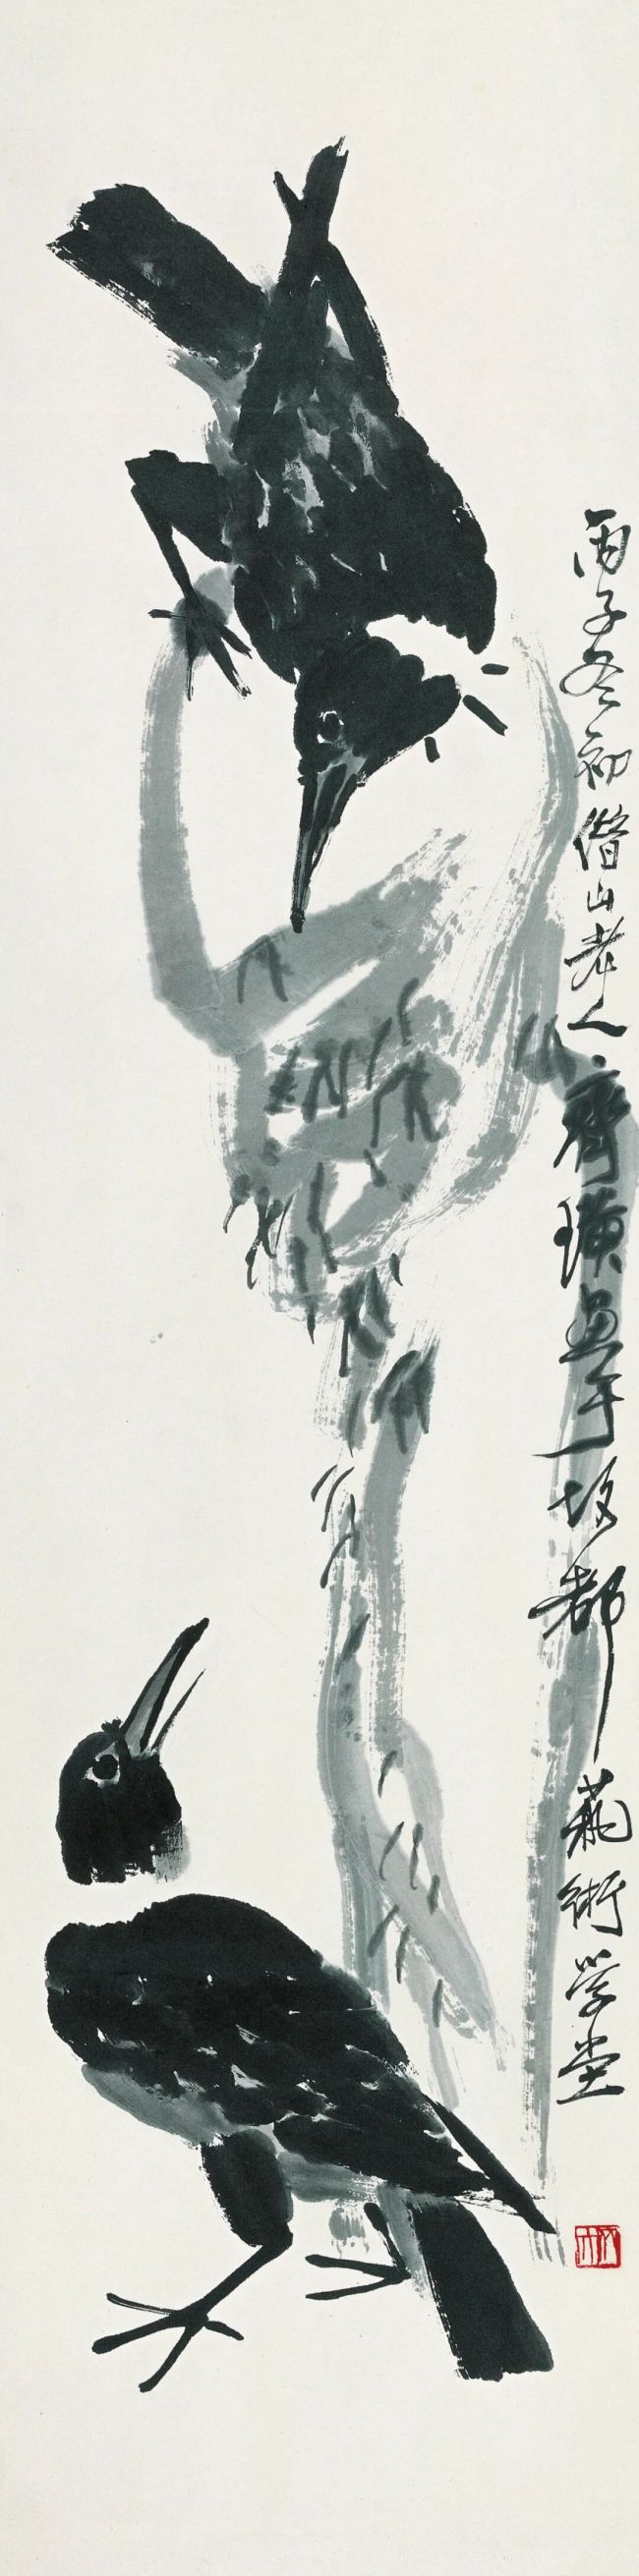 丙子冬初借山老人齊璜畫于故都萟術学堂